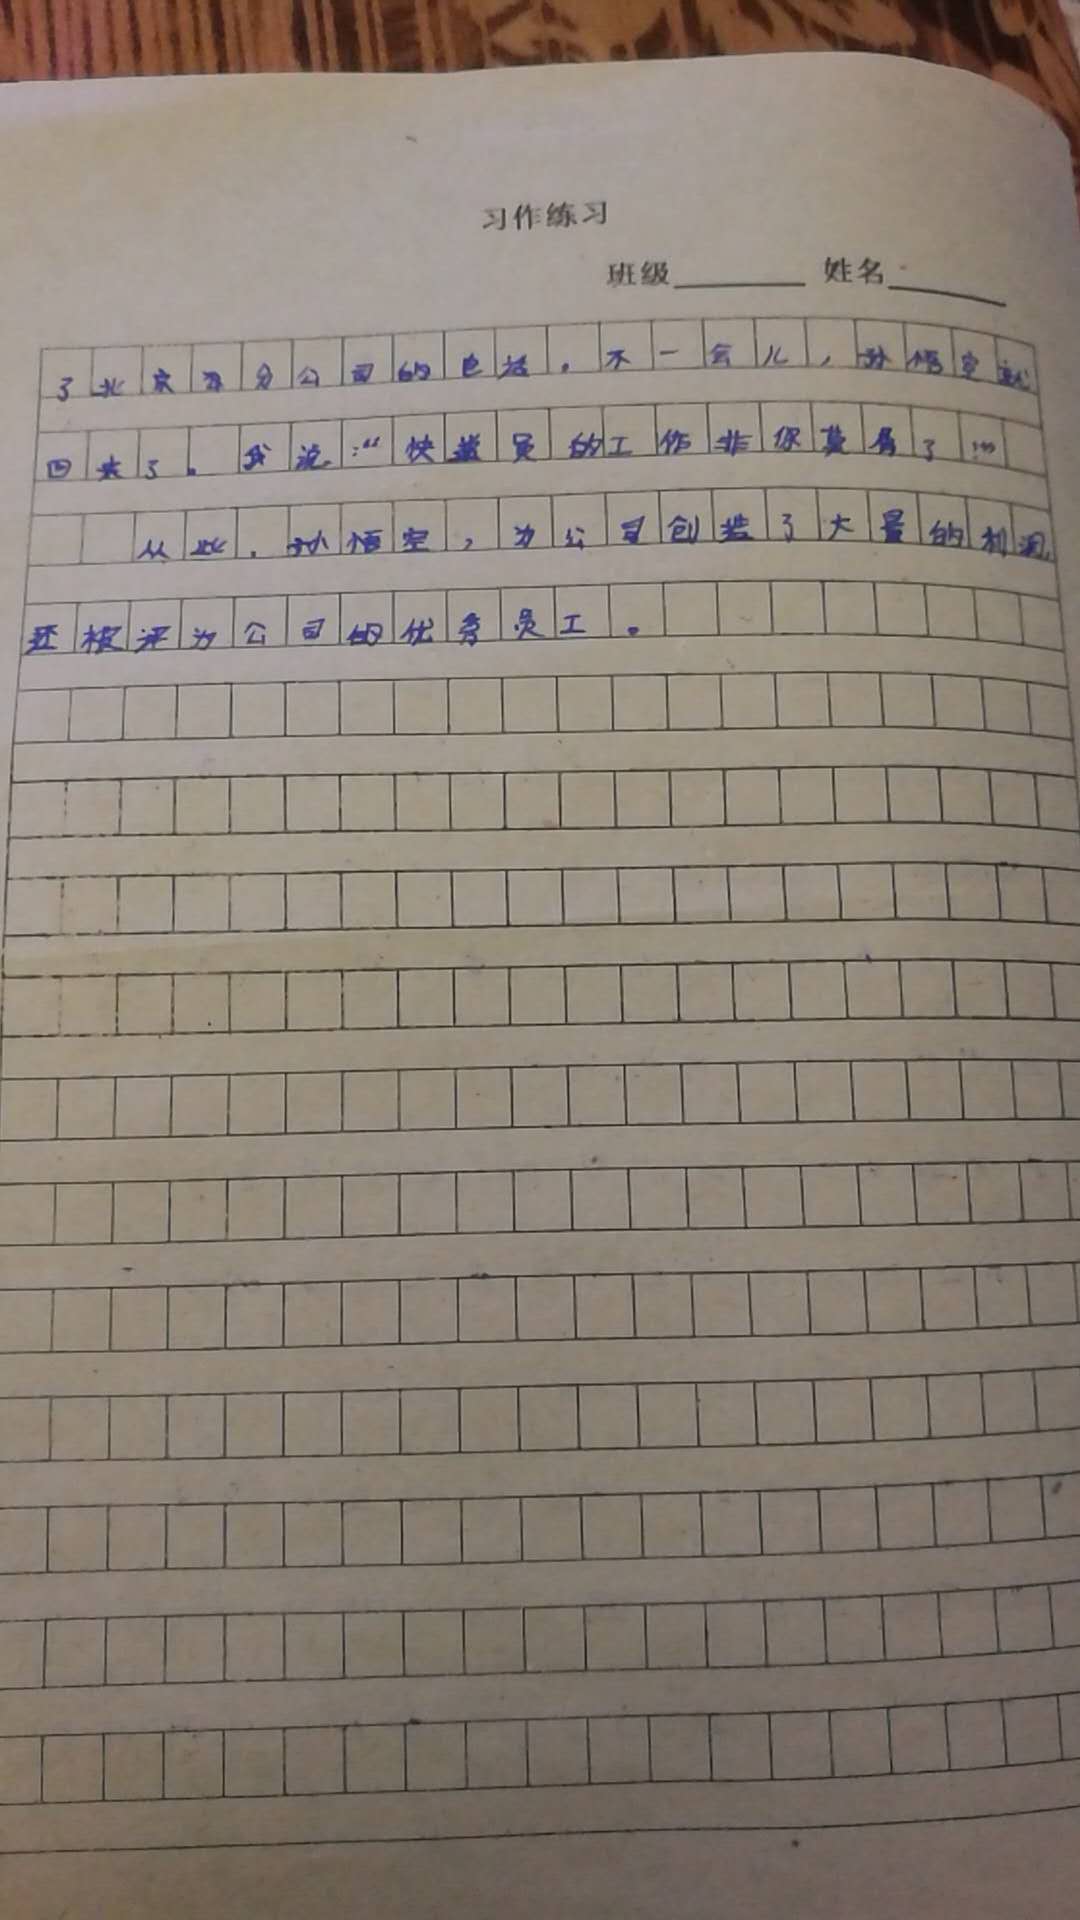 习作练习
班级 姓名
了北京分公司的电话。不一会儿，孙悟空就
回来了。我说：“快递员的工作非你莫属了！”
从此，孙悟空，为公司创造了大量的利润，
还被评为公司的优秀员工。